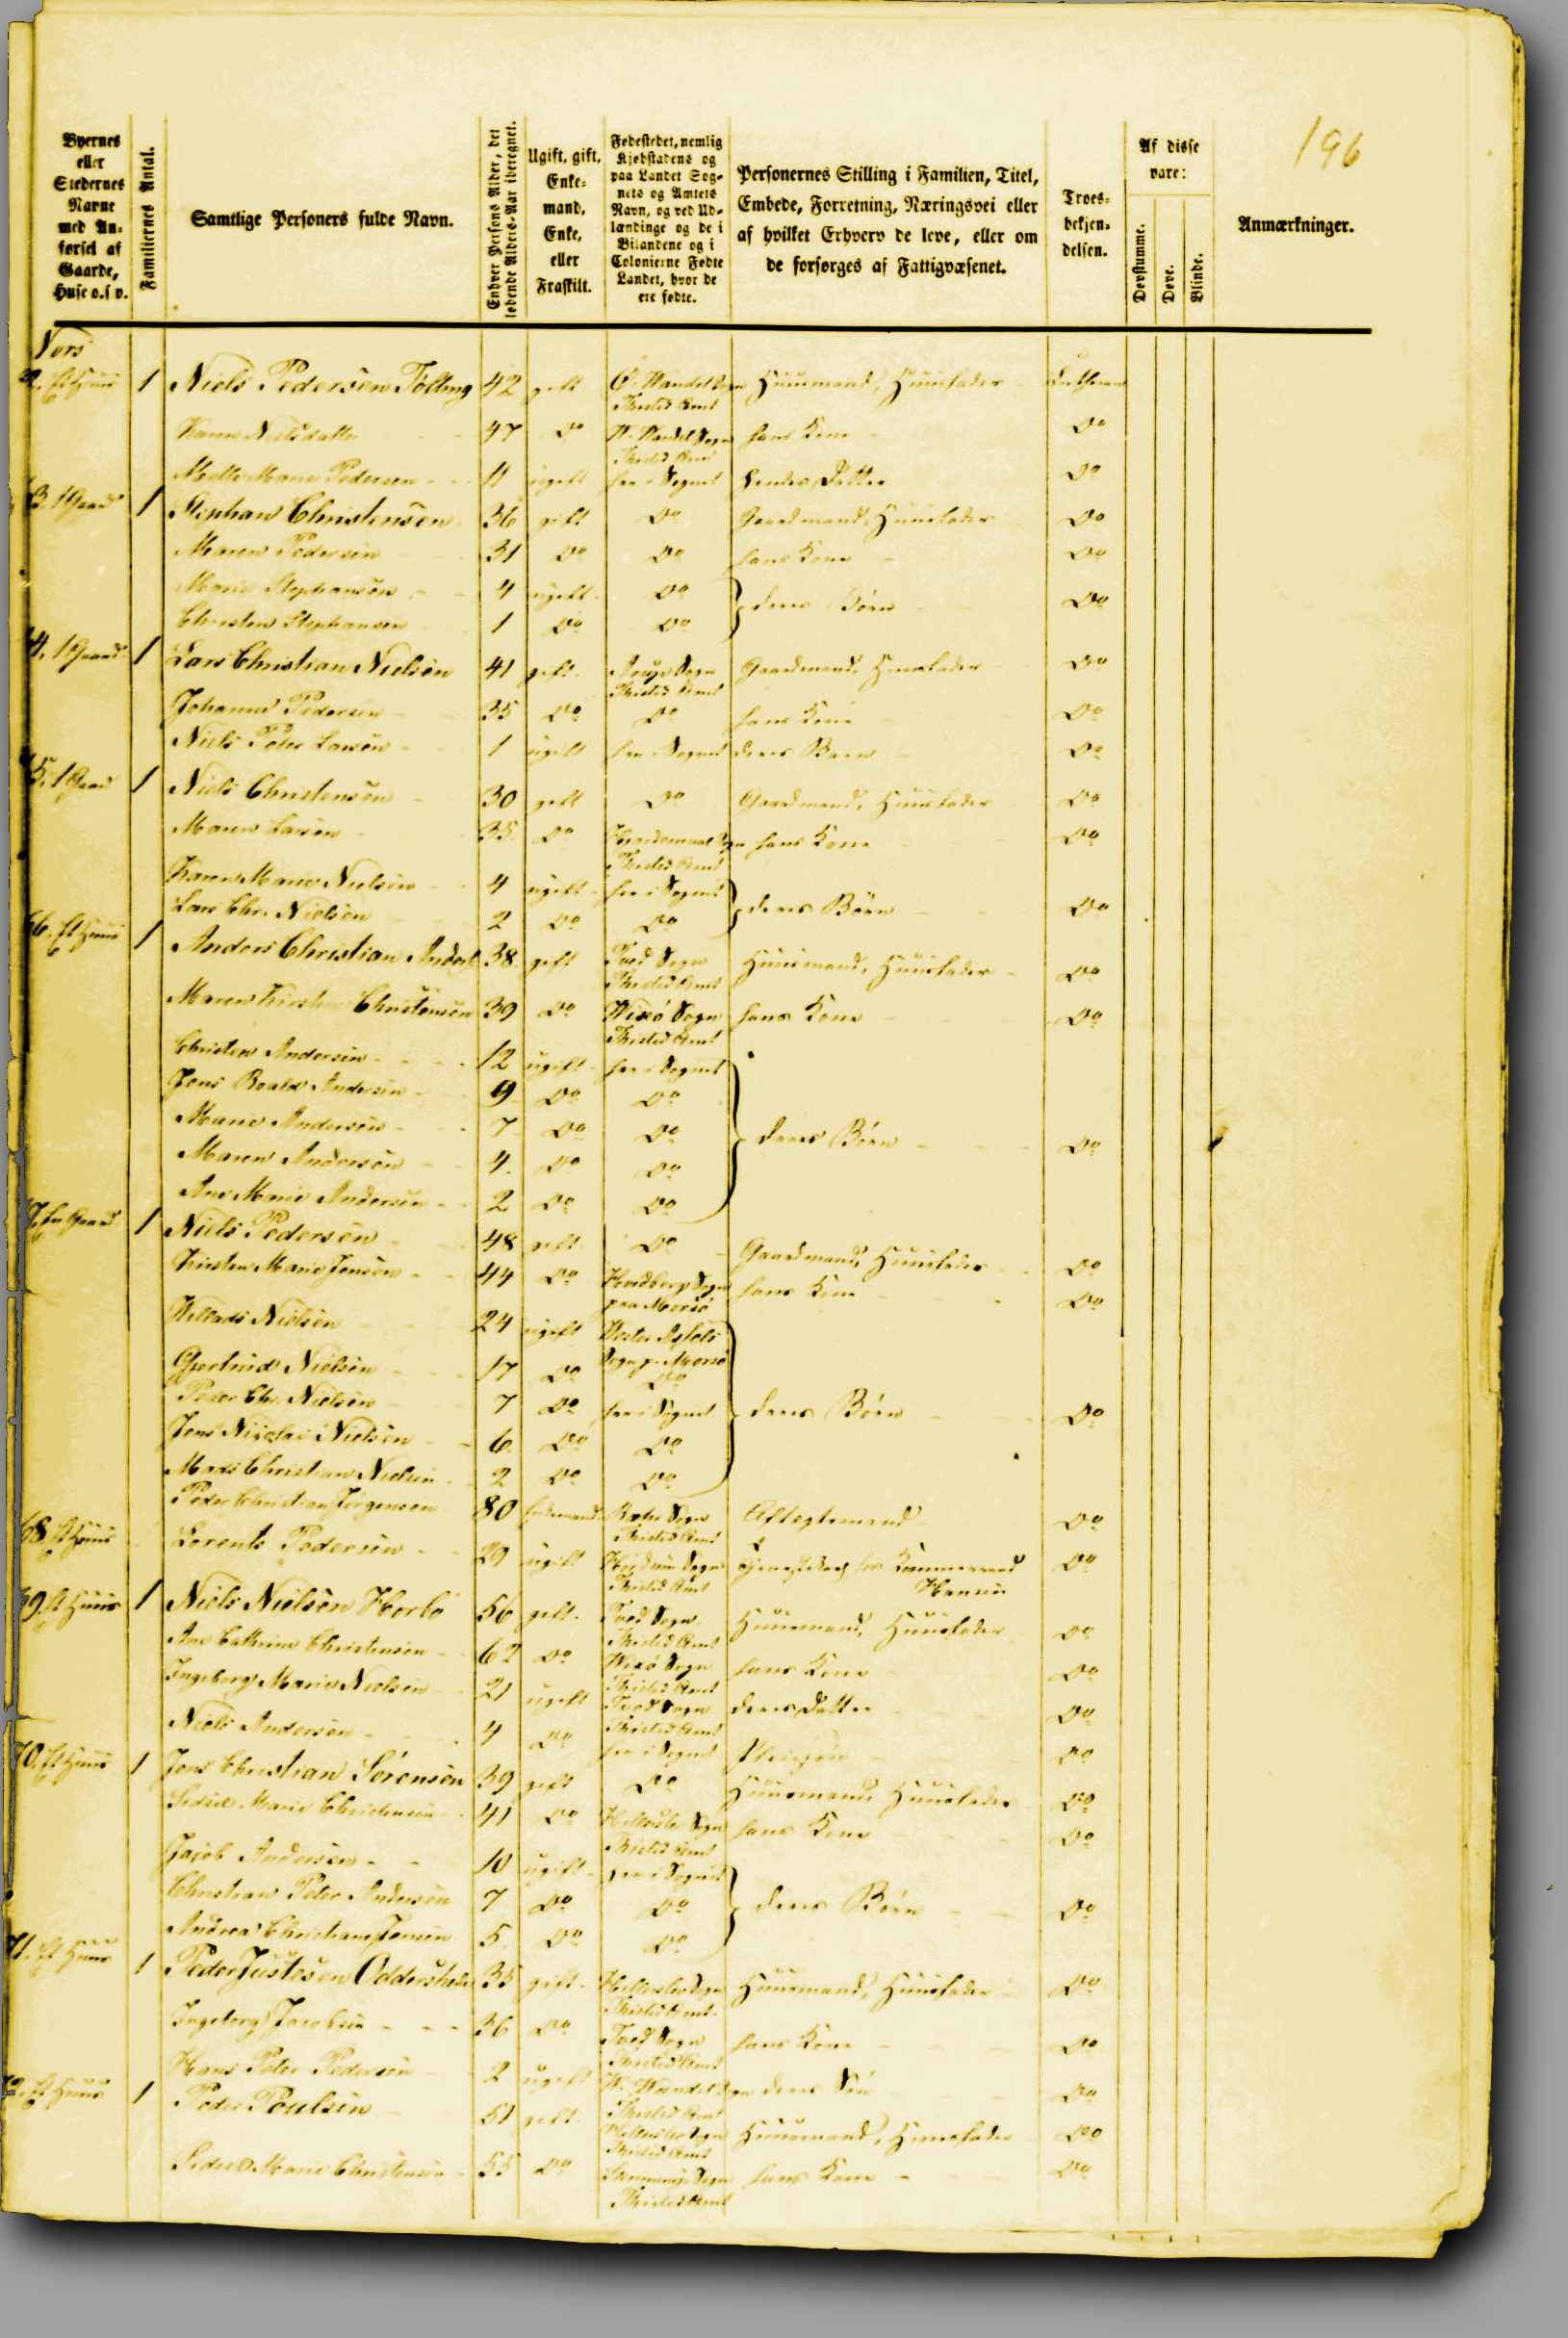 196
Byernes eller Stedernes Navne med Anførsel af Gaarde, Huse o.s.v.
Familiernes Antal.
Samtlige Personers fulde Navn.
Enhver Persons Alder, det løbende Alders-Aar iberegnet.
Ugift, gift, Enkemand, Enke, eller Fraskilt.
Fødestedet, nemlig Kjøbstadens og paa Landet Sognets og Amtets Navn, og ved Udlændinge og de i Bilandene og i Colonierne Fødte Landet, hvor de ere fødte.
Personernes Stilling i Familien, Titel, Embede, Forretning, Næringsvei eller af hvilket Erhverv de leve, eller om de forsørges af Fattigvæsenet.
Troesbekjendelsen.
Af disse vare:
Døvstumme.
Døve.
Blinde.
Anmærkninger.
Nors
Et Huus 1 Niels Pedersen Tölling 42 gift Ø. Wandet Sogn Thisted Amt Huusmand, Huusfader Luthersk
Karen Nielsdatter 47 Do W. Wandet Sogn Thisted Amt hans Kone Do
Mette Marie Pedersen 11 ugift her i Sognet Deres Datter Do
3. 1 Gaard 1 Stephan Christensen 36 gift Do Gaardmand, Huusfader Do
Maren Pedersen 31 Do Do hans Kone Do
Marie Stephansen 4 ugift Do deres Børn Do
Christen Stephansen 1 Do Do
4. 1 Gaard 1 Lars Christian Nielsen 41 gift Arup Sogn Thisted Amt Gaardmand, Huusfader Do
Johanne Pedersen 35 Do Do hans Kone Do
Niels Peter Larsen 1 ugift her i Sognet deres Barn Do
5. 1 Gaard 1 Niels Christensen 30 gift Do Gaardmand, Huusfader Do
Maren Larsen 35 Do Hjardemaal Sogn Thisted Amt hans Kone Do
Karen Marie Nielsen 4 ugift her i Sognet deres Börn Do
Lars Chr. Nielsen 2 Do Do
66. Et Huus 1 Anders Christian Anders 38 gift Tved Sogn Thisted Amt Huusmand, Huusfader Do
Maren Kirstine Christensen 39 Do Wixö Sogn Thisted Amt hans Kone Do
Christen Andersen 12 ugift her i Sognet
Jens Roald Andersen 9 Do Do
Marie Andersen 7 Do Do deres Börn Do
Maren Andersen 4 Do Do
Ane Marie Andersen 2 Do Do
7. En Gaard 1 Niels Pedersen 48 gift Do Gaardmand, Huusfader Do
Kirsten Marie Jensen 44 Do Hvidbjerg Sogn paa Morsö hans Kone Do
Willads Nielsen 24 ugift Vester Assels Sogn p. Morsö
Gjertrud Nielsen 17 Do Do
Peder Chr. Nielsen 7 Do her i Sognet deres Börn Do
Jens Nicolai Nielsen 6 Do Do
Mads Christian Nielsen 2 Do Do
Peder Christian Jörgensen 80 Enkemand Sogn Thisted Amt Aftægtsmand Do
68. Et Huus Lorents Pedersen 29 ugift Sogn Thisted Amt Kammerraad Hansen Do
69. Et Huus 1 Niels Nielsen Horbo 56 gift Tved Sogn Thisted Amt Huusmand, Huusfader Do
Ane Cathrine Christensen 62 Do Wixö Sogn Thisted Amt hans Kone Do
Ingeborg Marie Nielsen 21 ugift Tved Sogn Thisted Amt deres Datter Do
Niels Andersen 4 Do her i Sognet Pleiesøn Do
70. Et Huus 1 Jens Christian Sörensen 39 gift Do Huusmand, Huusfader Do
Sidsel Marie Christensen 41 Do Hillerslev Sogn Thisted Amt hans Kone Do
Jacob Andersen 10 ugift her i Sognet
Christian Peter Andersen 7 Do Do deres Börn Do
Andrea Christiane Jensen 5 Do Do
71. Et Huus 1 Peder Justesen Oddershede 35 gift Hillerslev Sogn Thisted Amt Huusmand, Huusfader Do
Ingeborg Jacobsen 36 Do Tved Sogn Thisted Amt hans Kone Do
Hans Peter Pedersen 2 ugift W. Wandet Sogn Thisted Amt deres Sön Do
Et Huus 1 Peder Poulsen 51 gift Hillerslev Sogn Thisted Amt Huusmand, Huusfader Do
Sidsel Marie Christensen 55 Do Sogn Thisted Amt hans Kone Do